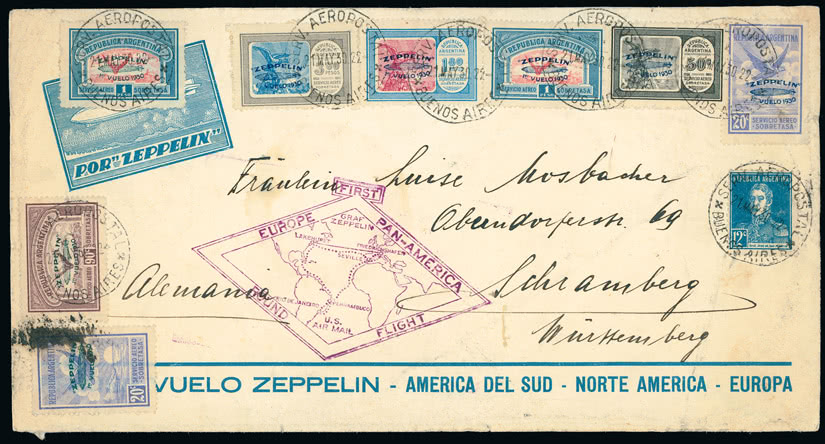 REPUBLICA ARGENTINA
ZEPPELIN
1er VUELO 1930
SERVICIO AEREO 1 SOBRETASA
ZEPPELIN
VUELO 1930
ZEPPELIN
1er VUELO 1930
REPUBLICA ARGENTINA
ZEPPELIN
1er VUELO 1930
SERVICIO AEREO 1 SOBRETASA
ZEPPELIN
VUELO 1930
50
ZEPPELIN
1er VUELO 1930
20c SERVICIO AEREO
SOBRETASA
SERV. AEROPOSTAL
BUENOS AIRES
POR "ZEPPELIN"
Fräulein Luise Mosbacher
Oberndorferstr. 69
Schramberg
Württemberg
Alemania
FIRST
EUROPE
PAN-AMERICA
ROUND
FLIGHT
GRAF
ZEPPELIN
LAKEHURST
FRIEDRICHSHAFEN
SEVILLE
RIO DE JANEIRO
PERNAMBUCO
U.S.
AIR MAIL
REPUBLICA ARGENTINA
12c
REPUBLICA ARGENTINA
ZEPPELIN
90c
REPUBLICA ARGENTINA
ZEPPELIN
1er VUELO 1930
20c
SERVICIO AEREO
SOBRETASA
VUELO ZEPPELIN - AMERICA DEL SUD - NORTE AMERICA - EUROPA